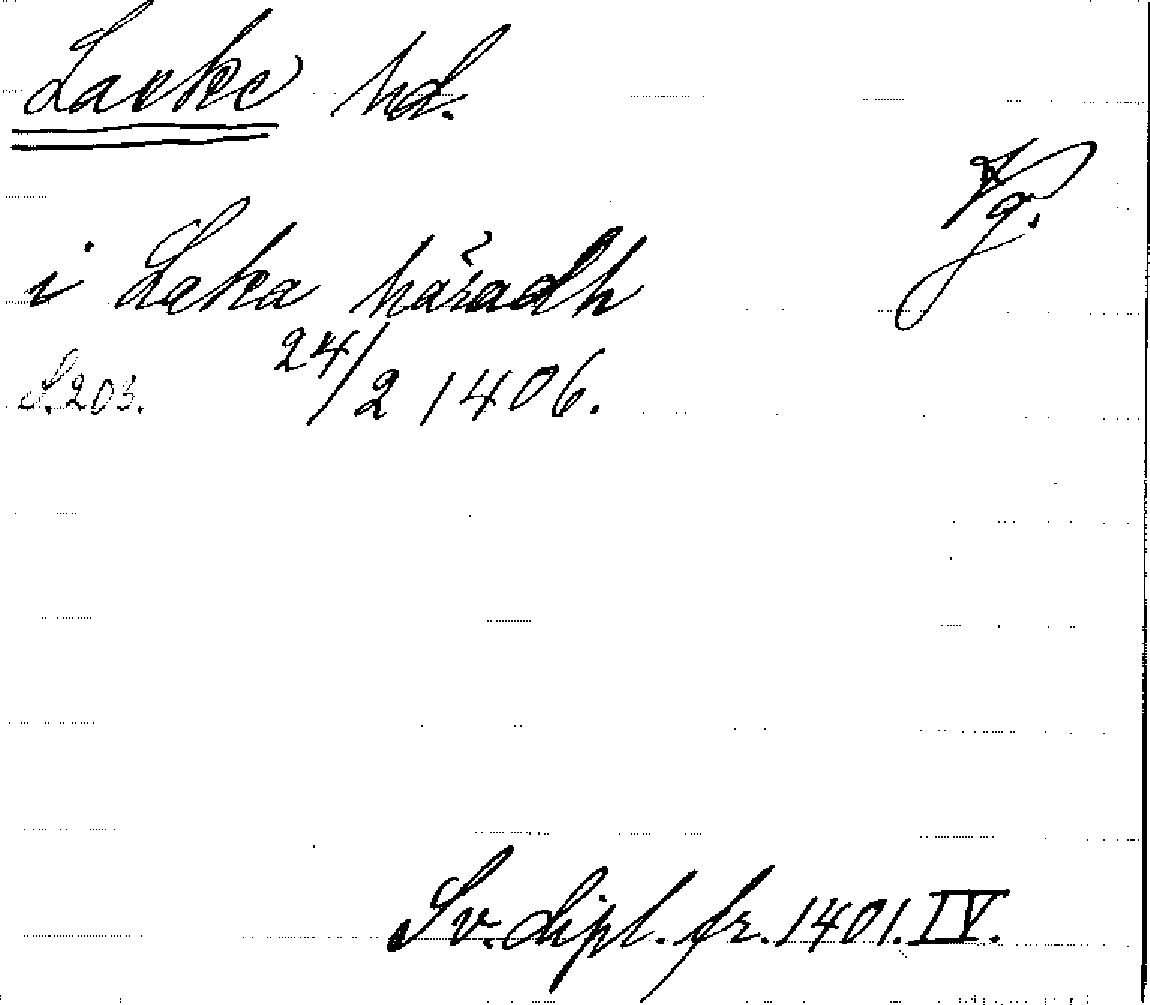 Laske hd.
Vg.
i Laska häradh
S. 203. 24/2 1406.
Sv. dipl. fr. 1401. IV.